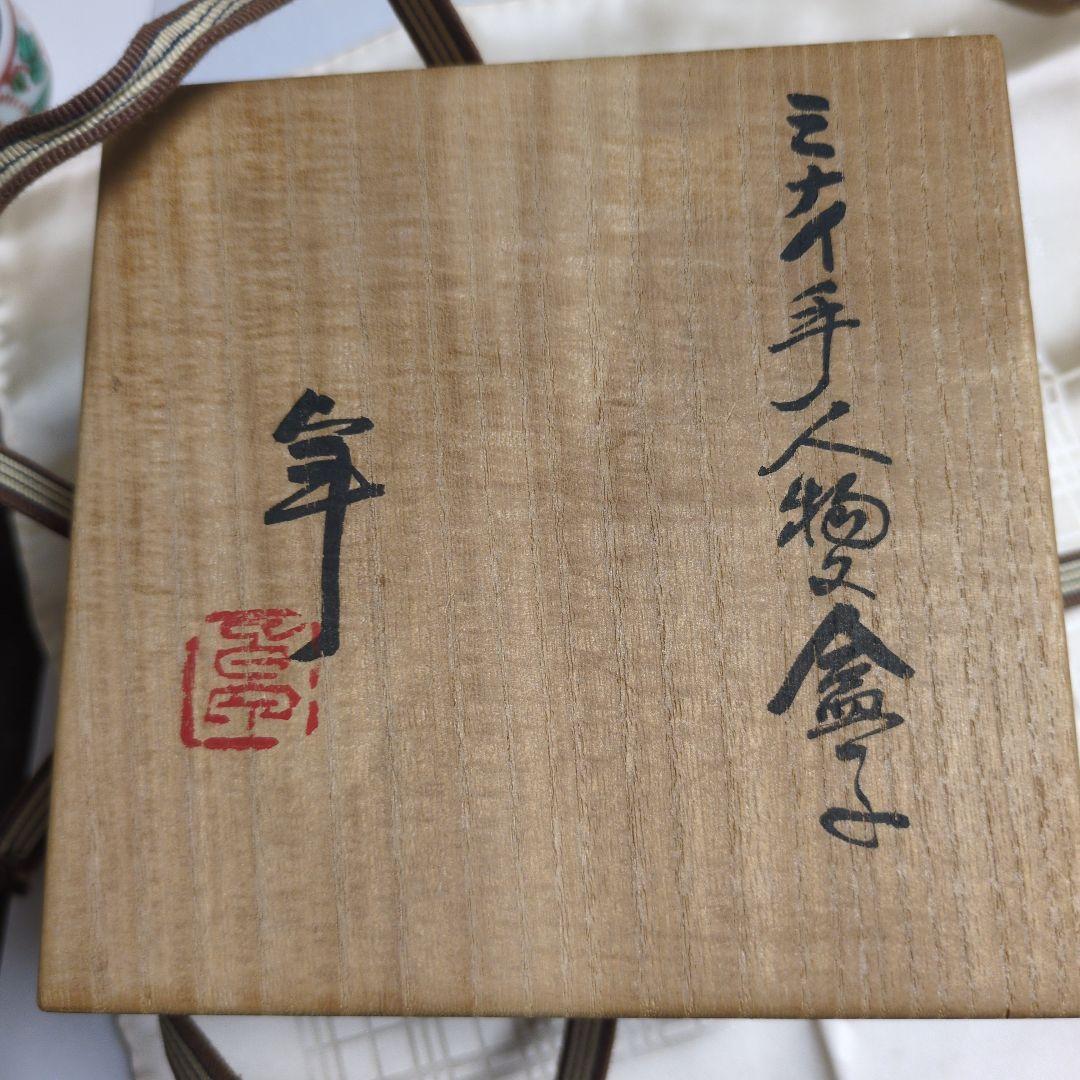 ミナイ手人物文盒子
年